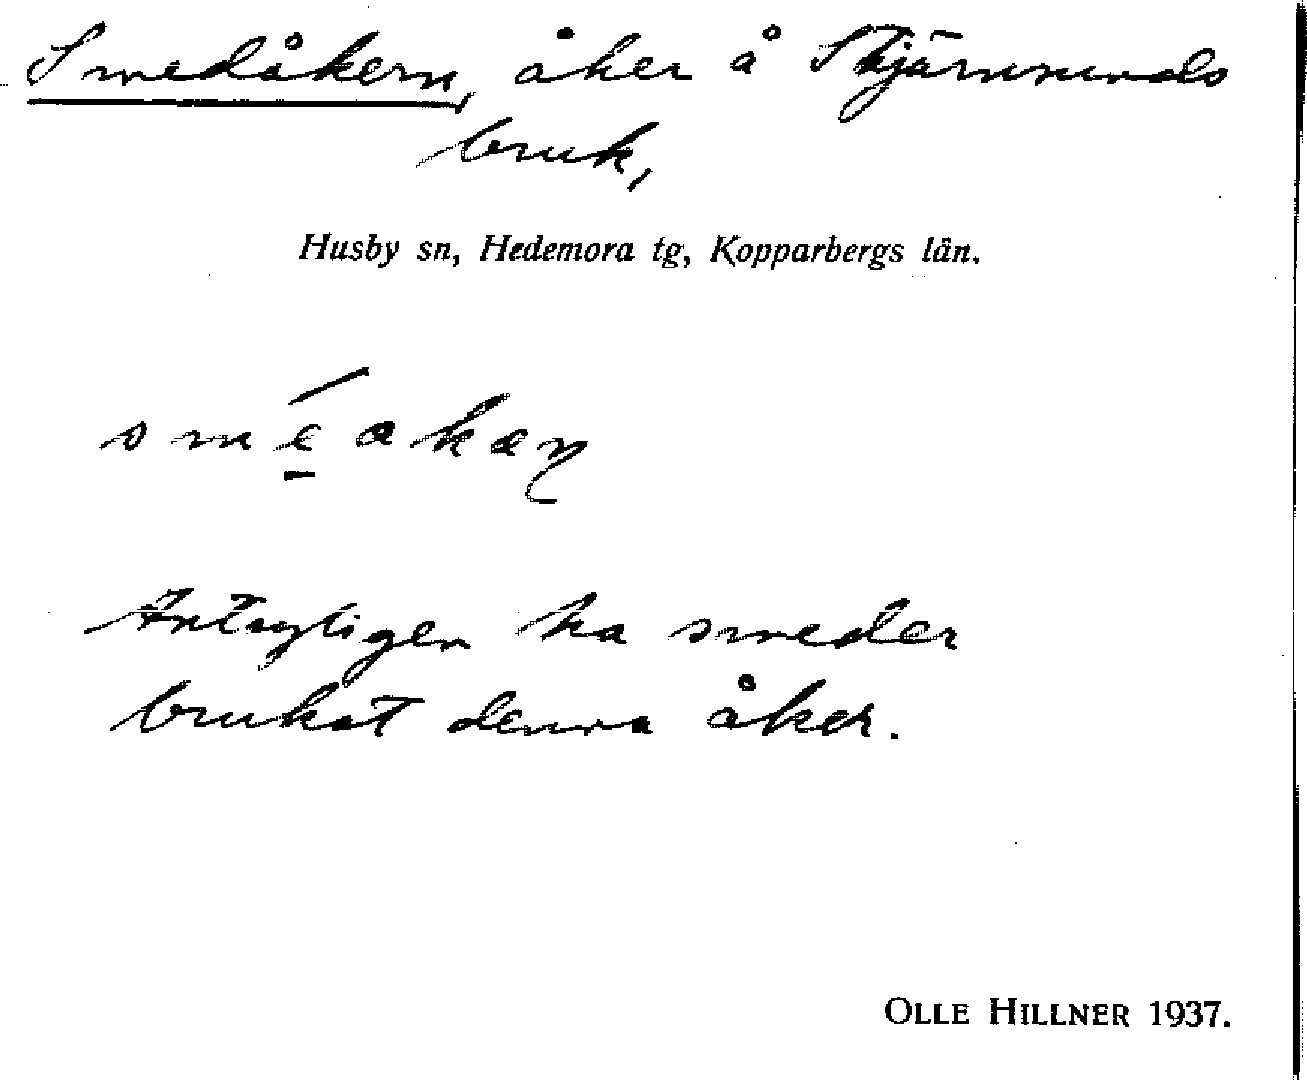 Smedåkern, åker å Stjärnsunds
bruk,
Husby sn, Hedemora tg, Kopparbergs län.
Antagligen ha smeder
brukat denna åker.
OLLE HILLNER 1937.